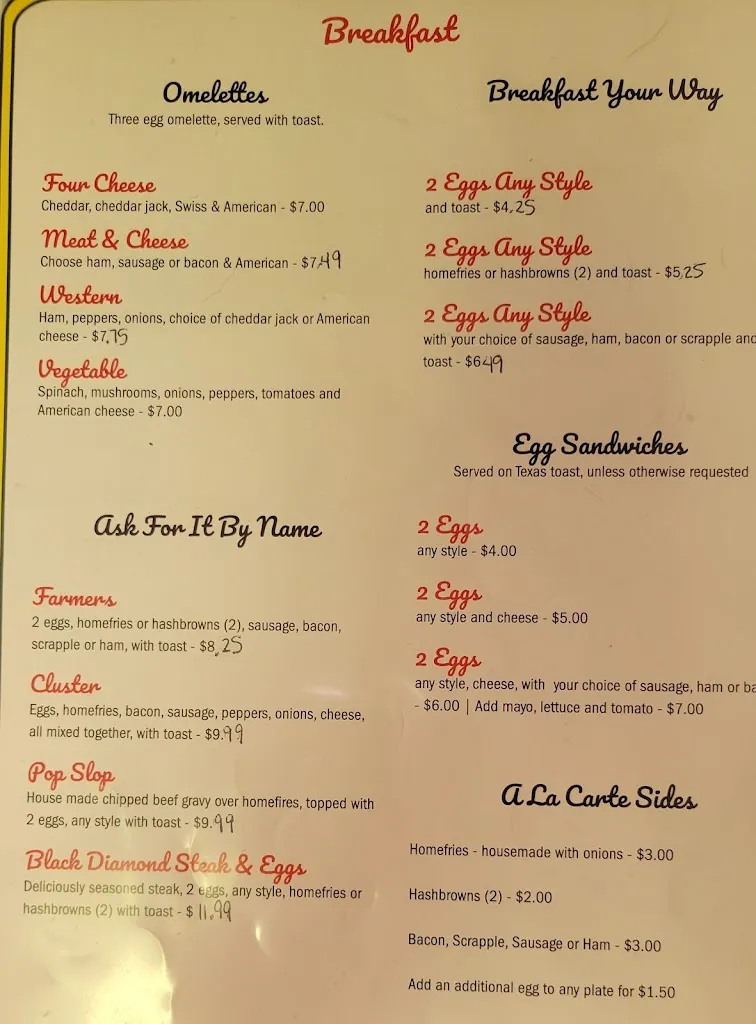 Breakfast
Omelettes
Three egg omelette, served with toast.
Four Cheese
Cheddar, cheddar jack, Swiss & American - $7.00
Meat & Cheese
Choose ham, sausage or bacon & American - $7.49
Western
Ham, peppers, onions, choice of cheddar jack or American
cheese - $7.75
Vegetable
Spinach, mushrooms, onions, peppers, tomatoes and
American cheese - $7.00
Ask For It By Name
Farmers
2 eggs, homefries or hashbrowns (2), sausage, bacon,
scrapple or ham, with toast - $8.25
Cluster
Eggs, homefries, bacon, sausage, peppers, onions, cheese,
all mixed together, with toast - $9.99
Pop Slop
House made chipped beef gravy over homefires, topped with
2 eggs, any style with toast - $9.99
Black Diamond Steak & Eggs
Deliciously seasoned steak, 2 eggs, any style, homefries or
hashbrowns (2) with toast - $ 11.99
Breakfast Your Way
2 Eggs Any Style
and toast - $4.25
2 Eggs Any Style
homefries or hashbrowns (2) and toast - $5.25
2 Eggs Any Style
with your choice of sausage, ham, bacon or scrapple and
toast - $6.49
Egg Sandwiches
Served on Texas toast, unless otherwise requested
2 Eggs
any style - $4.00
2 Eggs
any style and cheese - $5.00
2 Eggs
any style, cheese, with your choice of sausage, ham or ba
- $6.00 | Add mayo, lettuce and tomato - $7.00
A La Carte Sides
Homefries - housemade with onions - $3.00
Hashbrowns (2) - $2.00
Bacon, Scrapple, Sausage or Ham - $3.00
Add an additional egg to any plate for $1.50